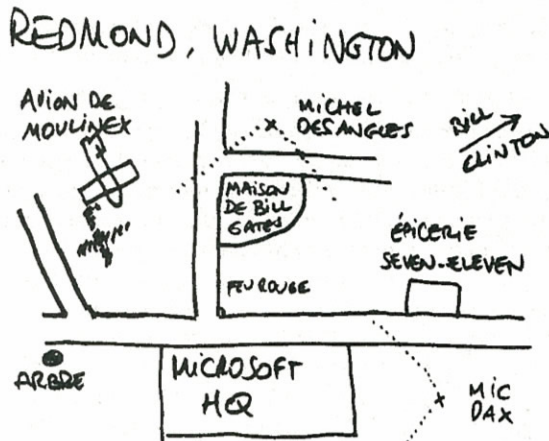 REDMOND, WASHINGTON
AVION DE
MOULINEX
MICHEL
DESANGLES
BILL
CLINTON
MAISON
DE BILL
GATES
ÉPICERIE
SEVEN-ELEVEN
FEU ROUGE
ARBRE
MICROSOFT
HQ
MIC
DAX